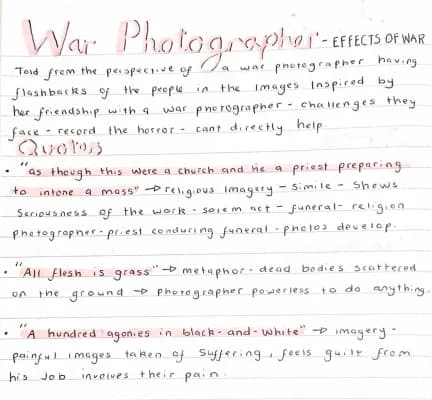 War Photographer - EFFECTS OF WAR
Told from the perspective of a war photographer having
flashbacks of the people in the images Inspired by
her friendship with a war photographer - challenges they
face - record the horror - cant directly help
Quotes
• "as though this were a church and he a priest preparing
to intone a mass" → religious Imagery - simile - Shows
Seriousness of the work - solem act - funeral - religion
photographer - priest conducing funeral - photos develop.
• "All flesh is grass" → metaphor - dead bodies scattered
on the ground → Photographer powerless to do anything.
• "A hundred agonies in black-and-white" → imagery -
painful images taken of Suffering, feels guilt from
his Job involves their pain.